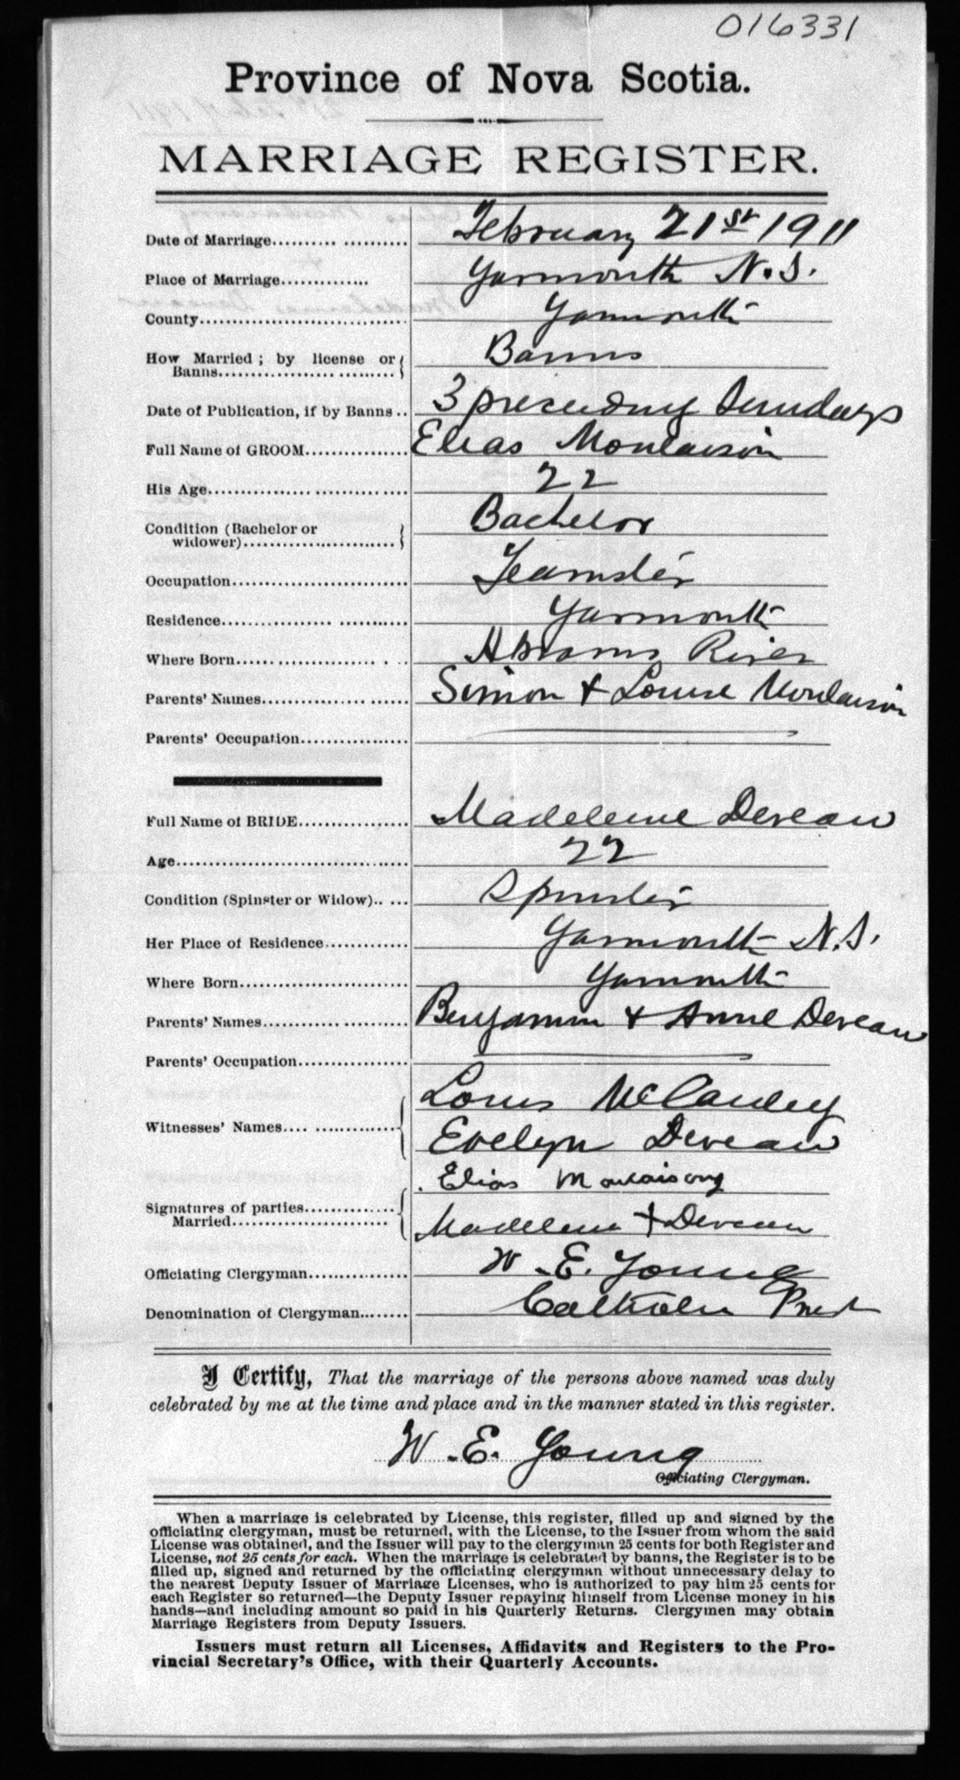 016331
Province of Nova Scotia.
MARRIAGE REGISTER.
Date of Marriage.......... ............ February 21st 1911
Place of Marriage............. Yarmouth N.S.
County.............................. Yarmouth
How Married; by license or Banns.................. ......... Banns
Date of Publication, if by Banns .. 3 preceding Sundays
Full Name of GROOM............... Elias Moulaison
His Age............... ............... 22
Condition (Bachelor or widower)......................... Bachelor
Occupation......................... Teamster
Residence................ ........... Yarmouth
Where Born...................... . .. Abrams River
Parents' Names.................. ...... Simon & Louise Moulaison
Parents' Occupation................
Full Name of BRIDE............... Madeleine Deveau
Age................................... 22
Condition (Spinster or Widow).. ... Spinster
Her Place of Residence............ Yarmouth N.S.
Where Born........................ Yarmouth
Parents' Names............ ........... Benjamin & Anne Deveau
Parents' Occupation................
Witnesses' Names.... .............. Louis McCauley
Evelyn Deveau
Signatures of parties Married....................... Elias Moulaisong
Madeleine + Deveau
Officiating Clergyman............... W. E. Young
Denomination of Clergyman........ Catholic Priest
I Certify, That the marriage of the persons above named was duly
celebrated by me at the time and place and in the manner stated in this register.
W. E. Young
Officiating Clergyman.
When a marriage is celebrated by License, this register, filled up and signed by the
officiating clergyman, must be returned, with the License, to the Issuer from whom the said
License was obtained, and the Issuer will pay to the clergyman 25 cents for both Register and
License, not 25 cents for each. When the marriage is celebrated by banns, the Register is to be
filled up, signed and returned by the officiating clergyman without unnecessary delay to
the nearest Deputy Issuer of Marriage Licenses, who is authorized to pay him 25 cents for
each Register so returned—the Deputy Issuer repaying himself from License money in his
hands—and including amount so paid in his Quarterly Returns. Clergymen may obtain
Marriage Registers from Deputy Issuers.
Issuers must return all Licenses, Affidavits and Registers to the Pro-
vincial Secretary's Office, with their Quarterly Accounts.